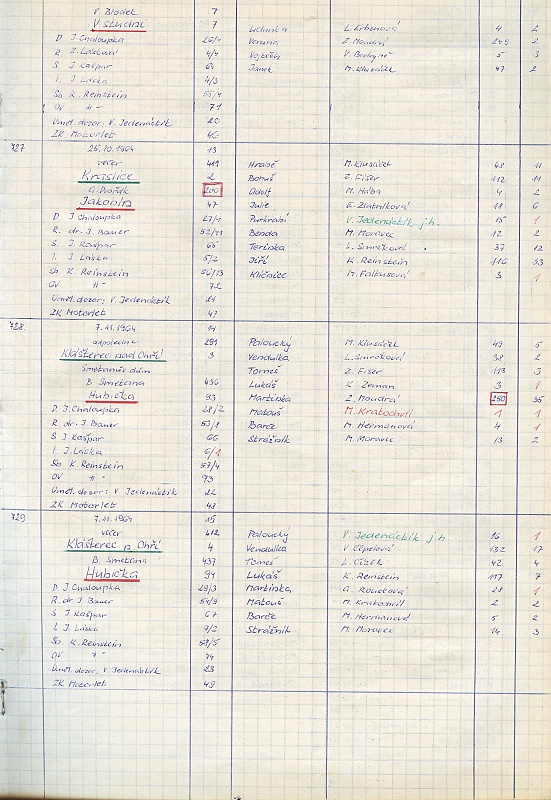 V. Blodek 7
V studni 7 Lidunka L. Krbenová 4 2
D J. Chaloupka 26/1 Veruna Z. Moudrá 249 2
R Z. Láskvař 4/4 Vojtěch V. Bednář 5 3
S J. Kašpar 64 Janek M. Klusáček 47 2
I. J Láska 4/3
Sb K. Reinstein 55/4
OV -"- 71
Uměl. dozor, V. Jedenáctík 20
ZK Motorlet 46
727 25.10.1964 13
večer 411 Hrabě M. Klusáček 48 11
Kraslice 2 Bohuš Z. Fišer 112 11
A. Dvořák 200 Adolf M. Malba 4 2
Jakobín 47 Julie E. Zlatníková 18 6
D J Chaloupka 27/1 Purkrabí V. Jedenáctík, j.h. 15 1
R. dr. J. Bauer 52/11 Benda M. Moravec 12 2
S. J. Kašpar 65 Terinka L. Smrčková 37 12
I. J. Láska 5/2 Jiří K. Reinstein 116 33
Sb K. Reinstein 56/13 Klíčnice M. Falkusová 3 1
OV -"- 72
Uměl. dozor; V. Jedenáctík 21
ZK Motorlet 47
728. 7.11.1964 14
odpoledne 291 Paloucký M. Klusáček 49 5
Klášterec nad Ohří 3 Vendulka L. Smrčková 38 2
Smetanův dům Tomeš Z. Fišer 113 3
B. Smetana 436 Lukáš K Zeman 3 1
Hubička 93 Martinka Z. Moudrá 250 35
D. J. Chaloupka 28/2 Matouš M. Kratochvíl 1 1
R. dr. J. Bauer 53/8 Barče M. Heřmanová 4 1
S J. Kašpar 66 Strážník M. Moravec 13 2
I. J Láska 6/1
Sb K. Reinstein 57/4
OV -"- 73
Uměl. dozor: V Jedenáctík 22
ZK Motorlet 48
729 7.11.1964 15
večer 412 Paloucký V Jedenáctík j.h. 16 1
Klášterec n. Ohří 4 Vendulka V Lepelová 132 17
B. Smetana 437 Tomeš L. Čížek 42 4
Hubička 94 Lukáš K. Reinstein 117 7
D J. Chaloupka 29/3 Martinka G. Roubová 28 1
R. dr. J. Bauer 54/9 Matouš M. Kratochvíl 2 2
S J Kašpar 67 Barče M. Heřmanová 5 2
I. J Láska 7/2 Strážník M. Moravec 14 3
Sb K. Reinstein 58/5
OV -"- 74
Uměl. dozor, V. Jedenáctík 23
ZK Motorlet 49